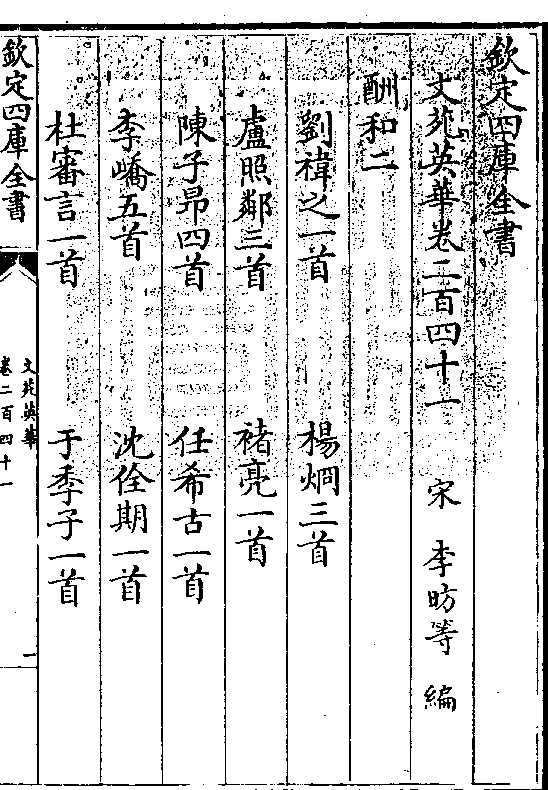 欽定四庫全書
文苑英華卷二百四十一　宋　李昉等　編
酬和二
劉禕之一首　楊烱三首
盧照鄰三首　褚亮一首
陳子昻四首　任希古一首
李嶠五首　沈佺期一首
杜審言一首　于季子一首
欽定四庫全書
文苑英華
卷二百四十一
一